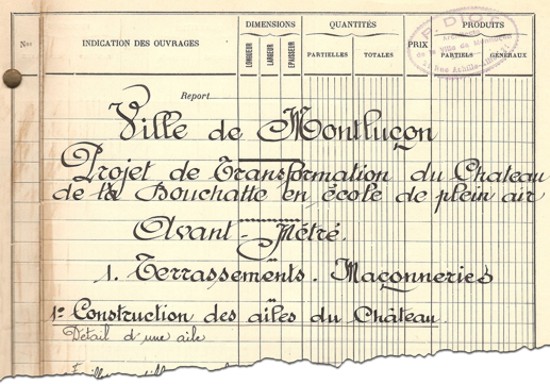 Nos
INDICATION DES OUVRAGES
DIMENSIONS
LONGUEUR
LARGEUR
EPAISSEUR
QUANTITÉS
PARTIELLES
TOTALES
PRIX
PRODUITS
PARTIELS
GÉNÉRAUX
P. DIOT
de la Ville de Montluçon
Report
Ville de Montluçon
Projet de Transformation du Chateau
de la Bouchatte en école de plein air
Avant-Métré.
1. Terrassements. Maçonneries
1º Construction des aîles du Château.
Détail d'une aile